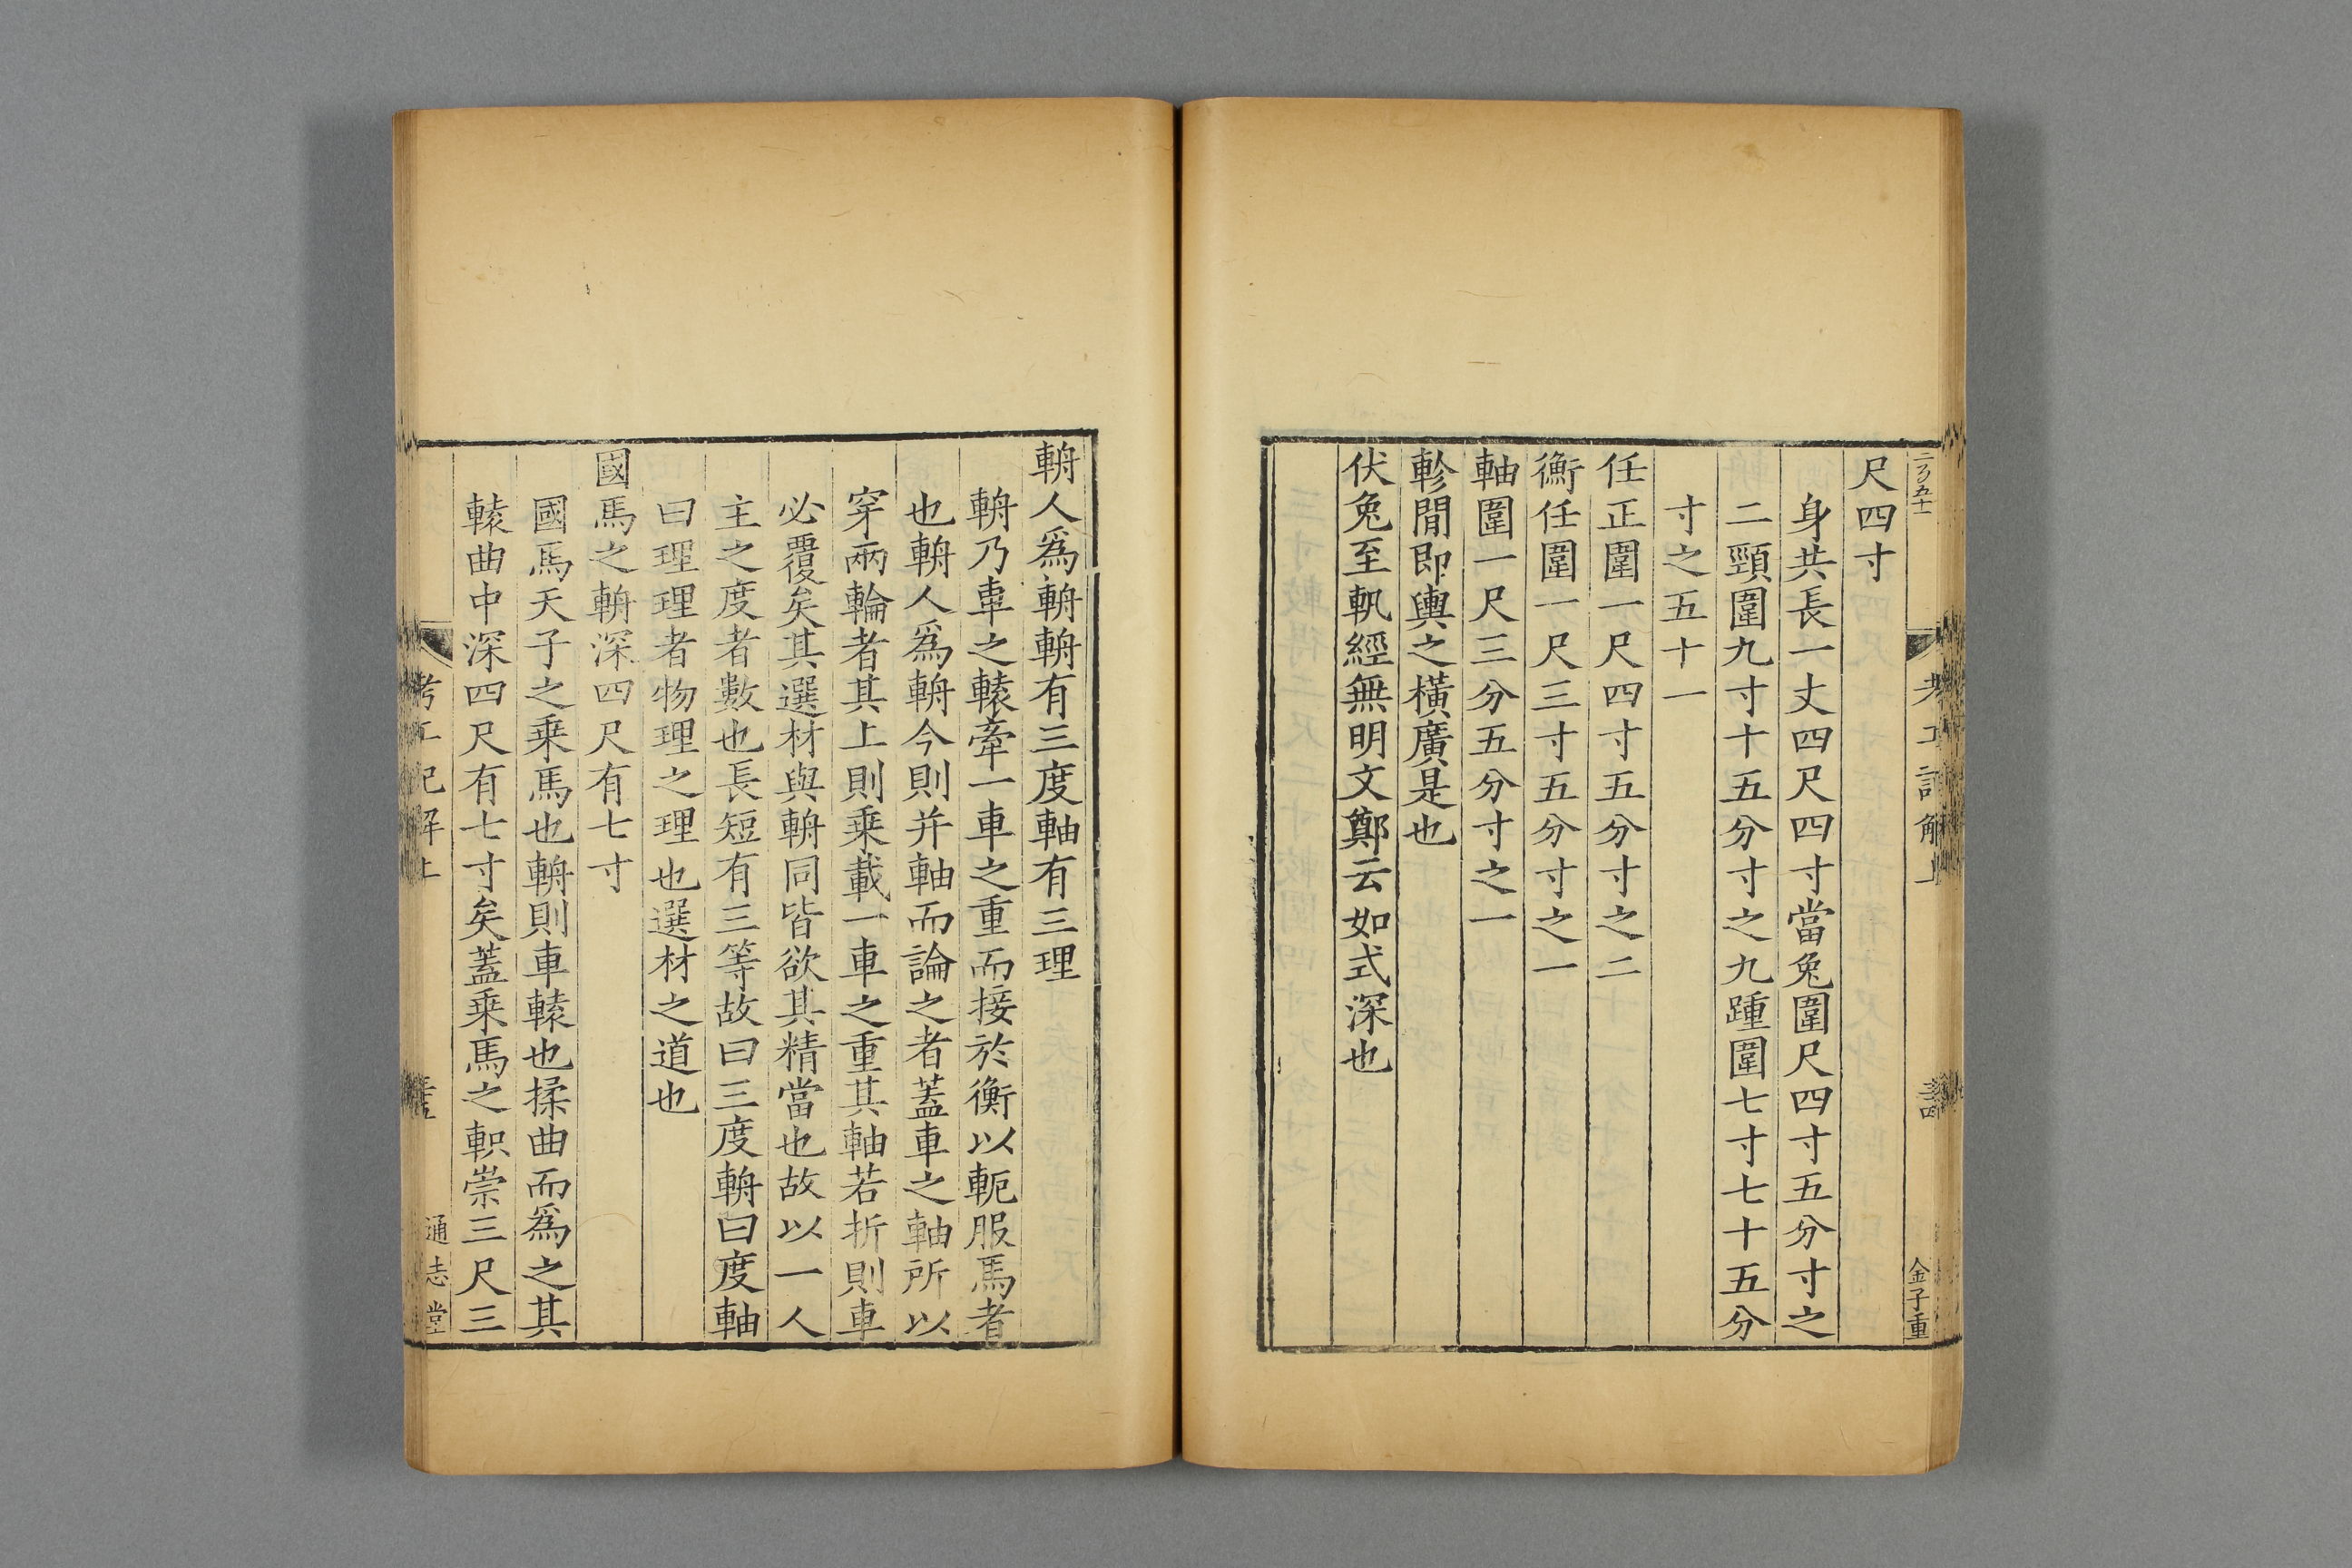 尺四寸
身共長一丈四尺四寸當兔圍尺四寸五分寸之
二頸圍九寸十五分寸之九踵圍七寸七十五分
寸之五十一
任正圍一尺四寸五分寸之二
衡任圍一尺三寸五分寸之一
軸圍一尺三分五分寸之一
軫閒即輿之橫廣是也
伏兔至軓經無明文鄭云如式深也
金子重
輈人爲輈輈有三度軸有三理
輈乃車之轅牽一車之重而接於衡以軛服馬者
也輈人爲輈今則并軸而論之者蓋車之軸所以
穿兩輪者其上則乗載一車之重其軸若折則車
必覆矣其選材與輈同皆欲其精當也故以一人
主之度者數也長短有三等故曰三度輈曰度軸
曰理理者物理之理也選材之道也
國馬之輈深四尺有七寸
國馬天子之乗馬也輈則車轅也揉曲而爲之其
轅曲中深四尺有七寸矣蓋乗馬之軹崇三尺三
考工記解上
通志堂